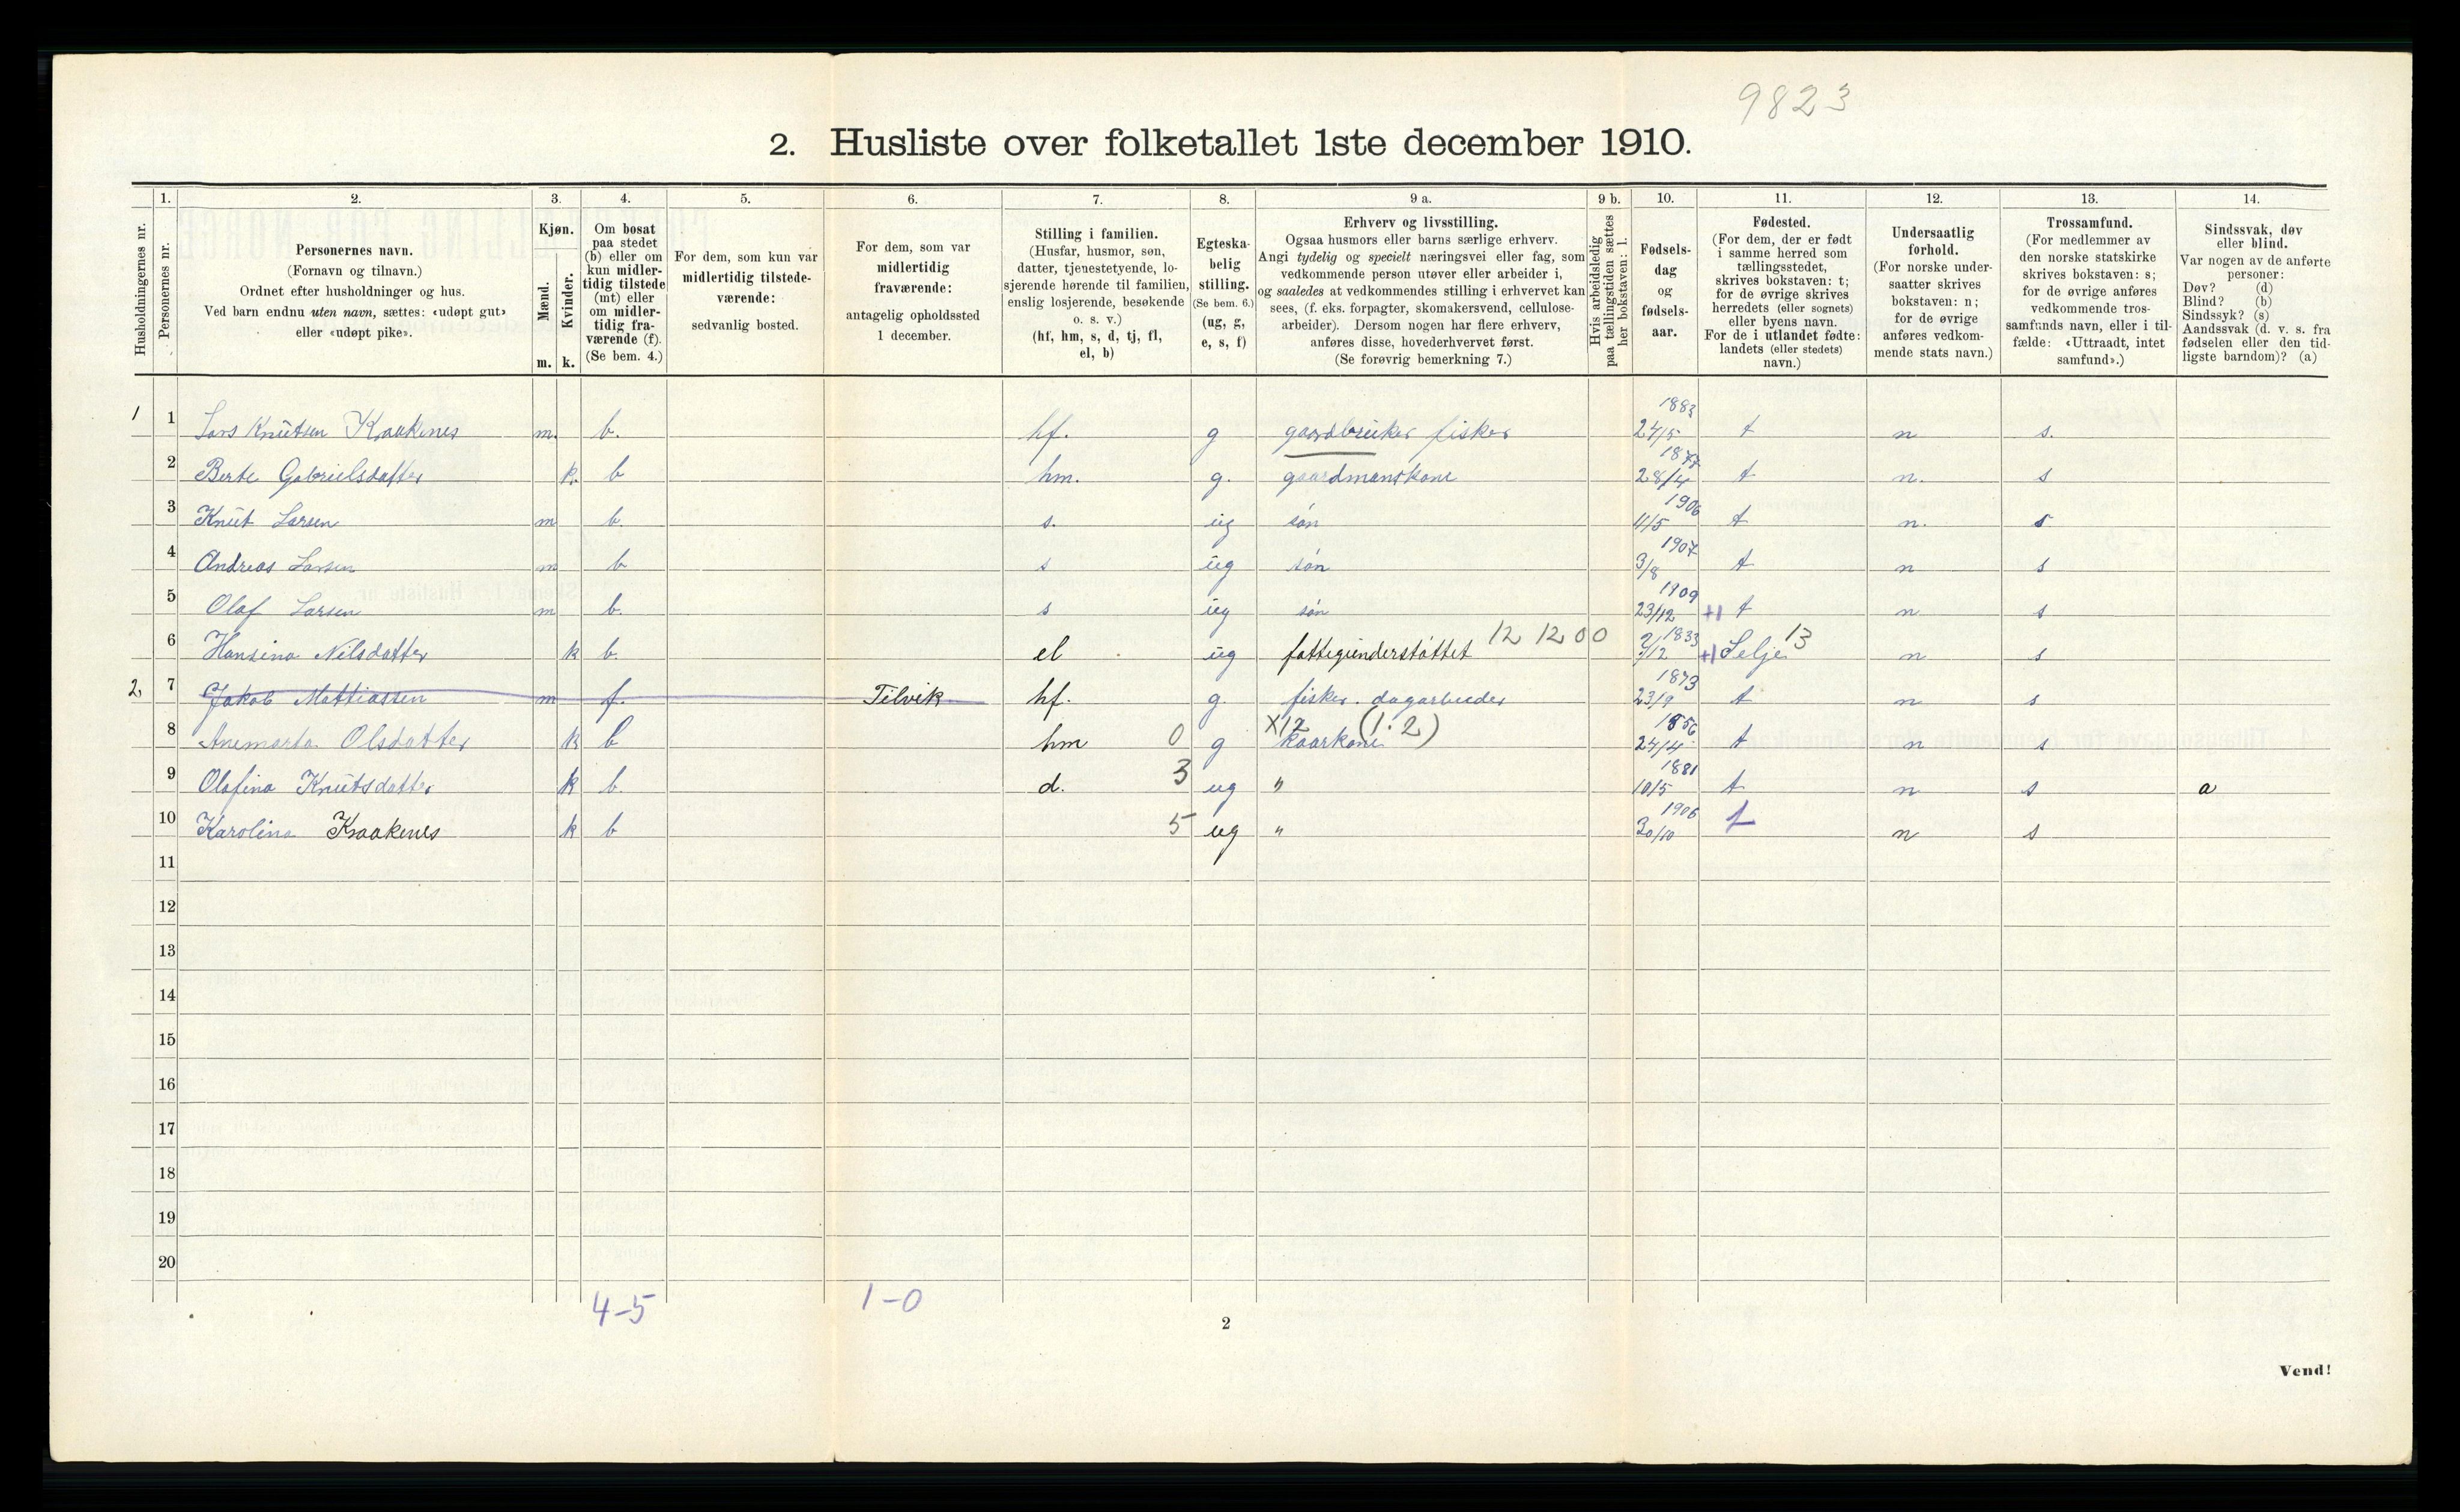 9823
2. Husliste over folketallet 1ste december 1910.
Husholdningernes nr.
1. Personernes nr.
2. Personernes navn.
(Fornavn og tilnavn.)
Ordnet efter husholdninger og hus.
Ved barn endnu uten navn, sættes: «udøpt gut»
eller «udøpt pike».
3. Kjøn.
Mænd. m.
Kvinder. k.
4. Om bosat
paa stedet
(b) eller om
kun midler-
tidig tilstede
(mt) eller
om midler-
tidig fra-
værende (f).
(Se bem. 4.)
5. For dem, som kun var
midlertidig tilstede-
værende:
sedvanlig bosted.
6. For dem, som var
midlertidig
fraværende:
antagelig opholdssted
1 december.
7. Stilling i familien.
(Husfar, husmor, søn,
datter, tjenestetyende, lo-
sjerende hørende til familien,
enslig losjerende, besøkende
o. s. v.)
(hf, hm, s, d, tj, fl,
el, b)
8. Egteska-
belig
stilling.
(Se bem. 6.)
(ug, g,
e, s, f)
9 a. Erhverv og livsstilling.
Ogsaa husmors eller barns særlige erhverv.
Angi tydelig og specielt næringsvei eller fag, som
vedkommende person utøver eller arbeider i,
og saaledes at vedkommendes stilling i erhvervet kan
sees, (f. eks. forpagter, skomakersvend, cellulose-
arbeider). Dersom nogen har flere erhverv,
anføres disse, hovederhvervet først.
(Se forøvrig bemerkning 7.)
9 b. Hvis arbeidsledig
paa tællingstiden sættes
her bokstaven: l.
10. Fødsels-
dag
og
fødsels-
aar.
11. Fødested.
(For dem, der er født
i samme herred som
tællingsstedet,
skrives bokstaven: t;
for de øvrige skrives
herredets (eller sognets)
eller byens navn.
For de i utlandet fødte:
landets (eller stedets)
navn.)
12. Undersaatlig
forhold.
(For norske under-
saatter skrives
bokstaven: n;
for de øvrige
anføres vedkom-
mende stats navn.)
13. Trossamfund.
(For medlemmer av
den norske statskirke
skrives bokstaven: s;
for de øvrige anføres
vedkommende tros-
samfunds navn, eller i til-
fælde: «Uttraadt, intet
samfund».)
14. Sindssvak, døv
eller blind.
Var nogen av de anførte
personer:
Døv? (d)
Blind? (b)
Sindssyk? (s)
Aandssvak (d. v. s. fra
fødselen eller den tid-
ligste barndom)? (a)
1 1 Lars Knutsen Kraakenes m. b. hf. g gaardbruker fisker 1883 24/5 t n s.
2 Berte Gabrielsdatter k. b hm. g. gaardmanskone 1877 28/4 t n. s
3 Knut Larsen m b. s. ug søn 1906 4/5 t n. s
4 Andreas Larsen m b s ug søn 1907 3/8 t n s
5 Olaf Larsen m b. s ug søn 1909 23/12 +1 t n s
6 Hansina Nilsdatter k b. el ug fattigunderstøttet 12 12 00 1833 /12 +1 Selje 13 n s
2. 7 Jakob Mattiassen m f. Tilvik hf. g. fisker. dagarbeider 1873 23/9 t n s
8 Anemarta Olsdatter k b hm 0 g X12 (1.2) kaarkone 1856 24/4 t n s
9 Olafina Knutsdatter k b. d. 3 ug " 1881 10/5 t n s a
10 Karolina Kraakenes k b 5 ug " 1906 30/10 t n s
11
12
13
14
15
16
17
18
19
20
4-5 1-0
2
Vend!